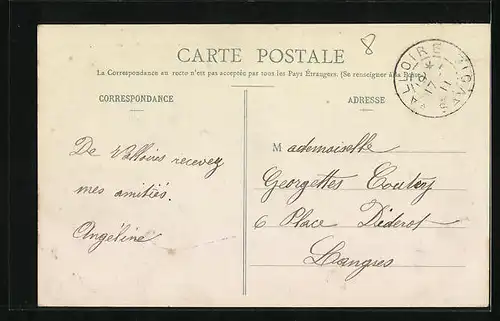 8
CARTE POSTALE
La Correspondance au recto n'est pas acceptée par tous les Pays Étrangers. (Se renseigner à la Poste)
CORRESPONDANCE
ADRESSE
De Valloires recevez
mes amitiés.
Angéline
Mademoiselle
Georgettes
6 Place Diderot
Langres